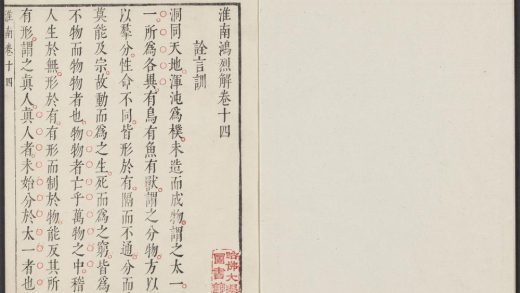 淮南鴻烈解卷十四
詮言訓
洞同天地渾沌爲樸未造而成物謂之太一
一所爲各異有鳥有魚有獸謂之分物方以
以羣分性命不同皆形於有隔而不通分而
莫能及宗故動而爲之生死而爲之窮皆
不物而物物者也物物者亡乎萬物之中稽
人生於無形於有有形而制於物能反其所
有形謂之真人真人者未始分於太一者也
淮南卷十四
哈佛大
圖書館